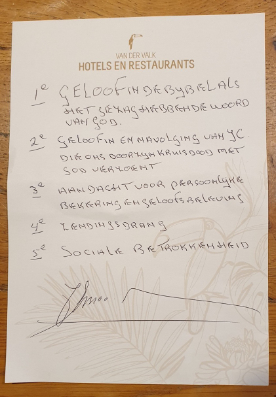 VAN DER VALK
HOTELS EN RESTAURANTS
1e GELOOF IN DE BYBEL ALS
HET GEZAGHEBBENDE WOORD
VAN GOD.
2e GELOOF IN EN NAVOLGING VAN JC
DIE ONS DOOR ZYN KRUISDOOD MET
GOD VERZOENT
3e AANDACHT VOOR PERSOONLYKE
BEKERING EN GELOOFSBELEVING
4e ZENDINGSDRANG
5e SOCIALE BETROKKENHEID